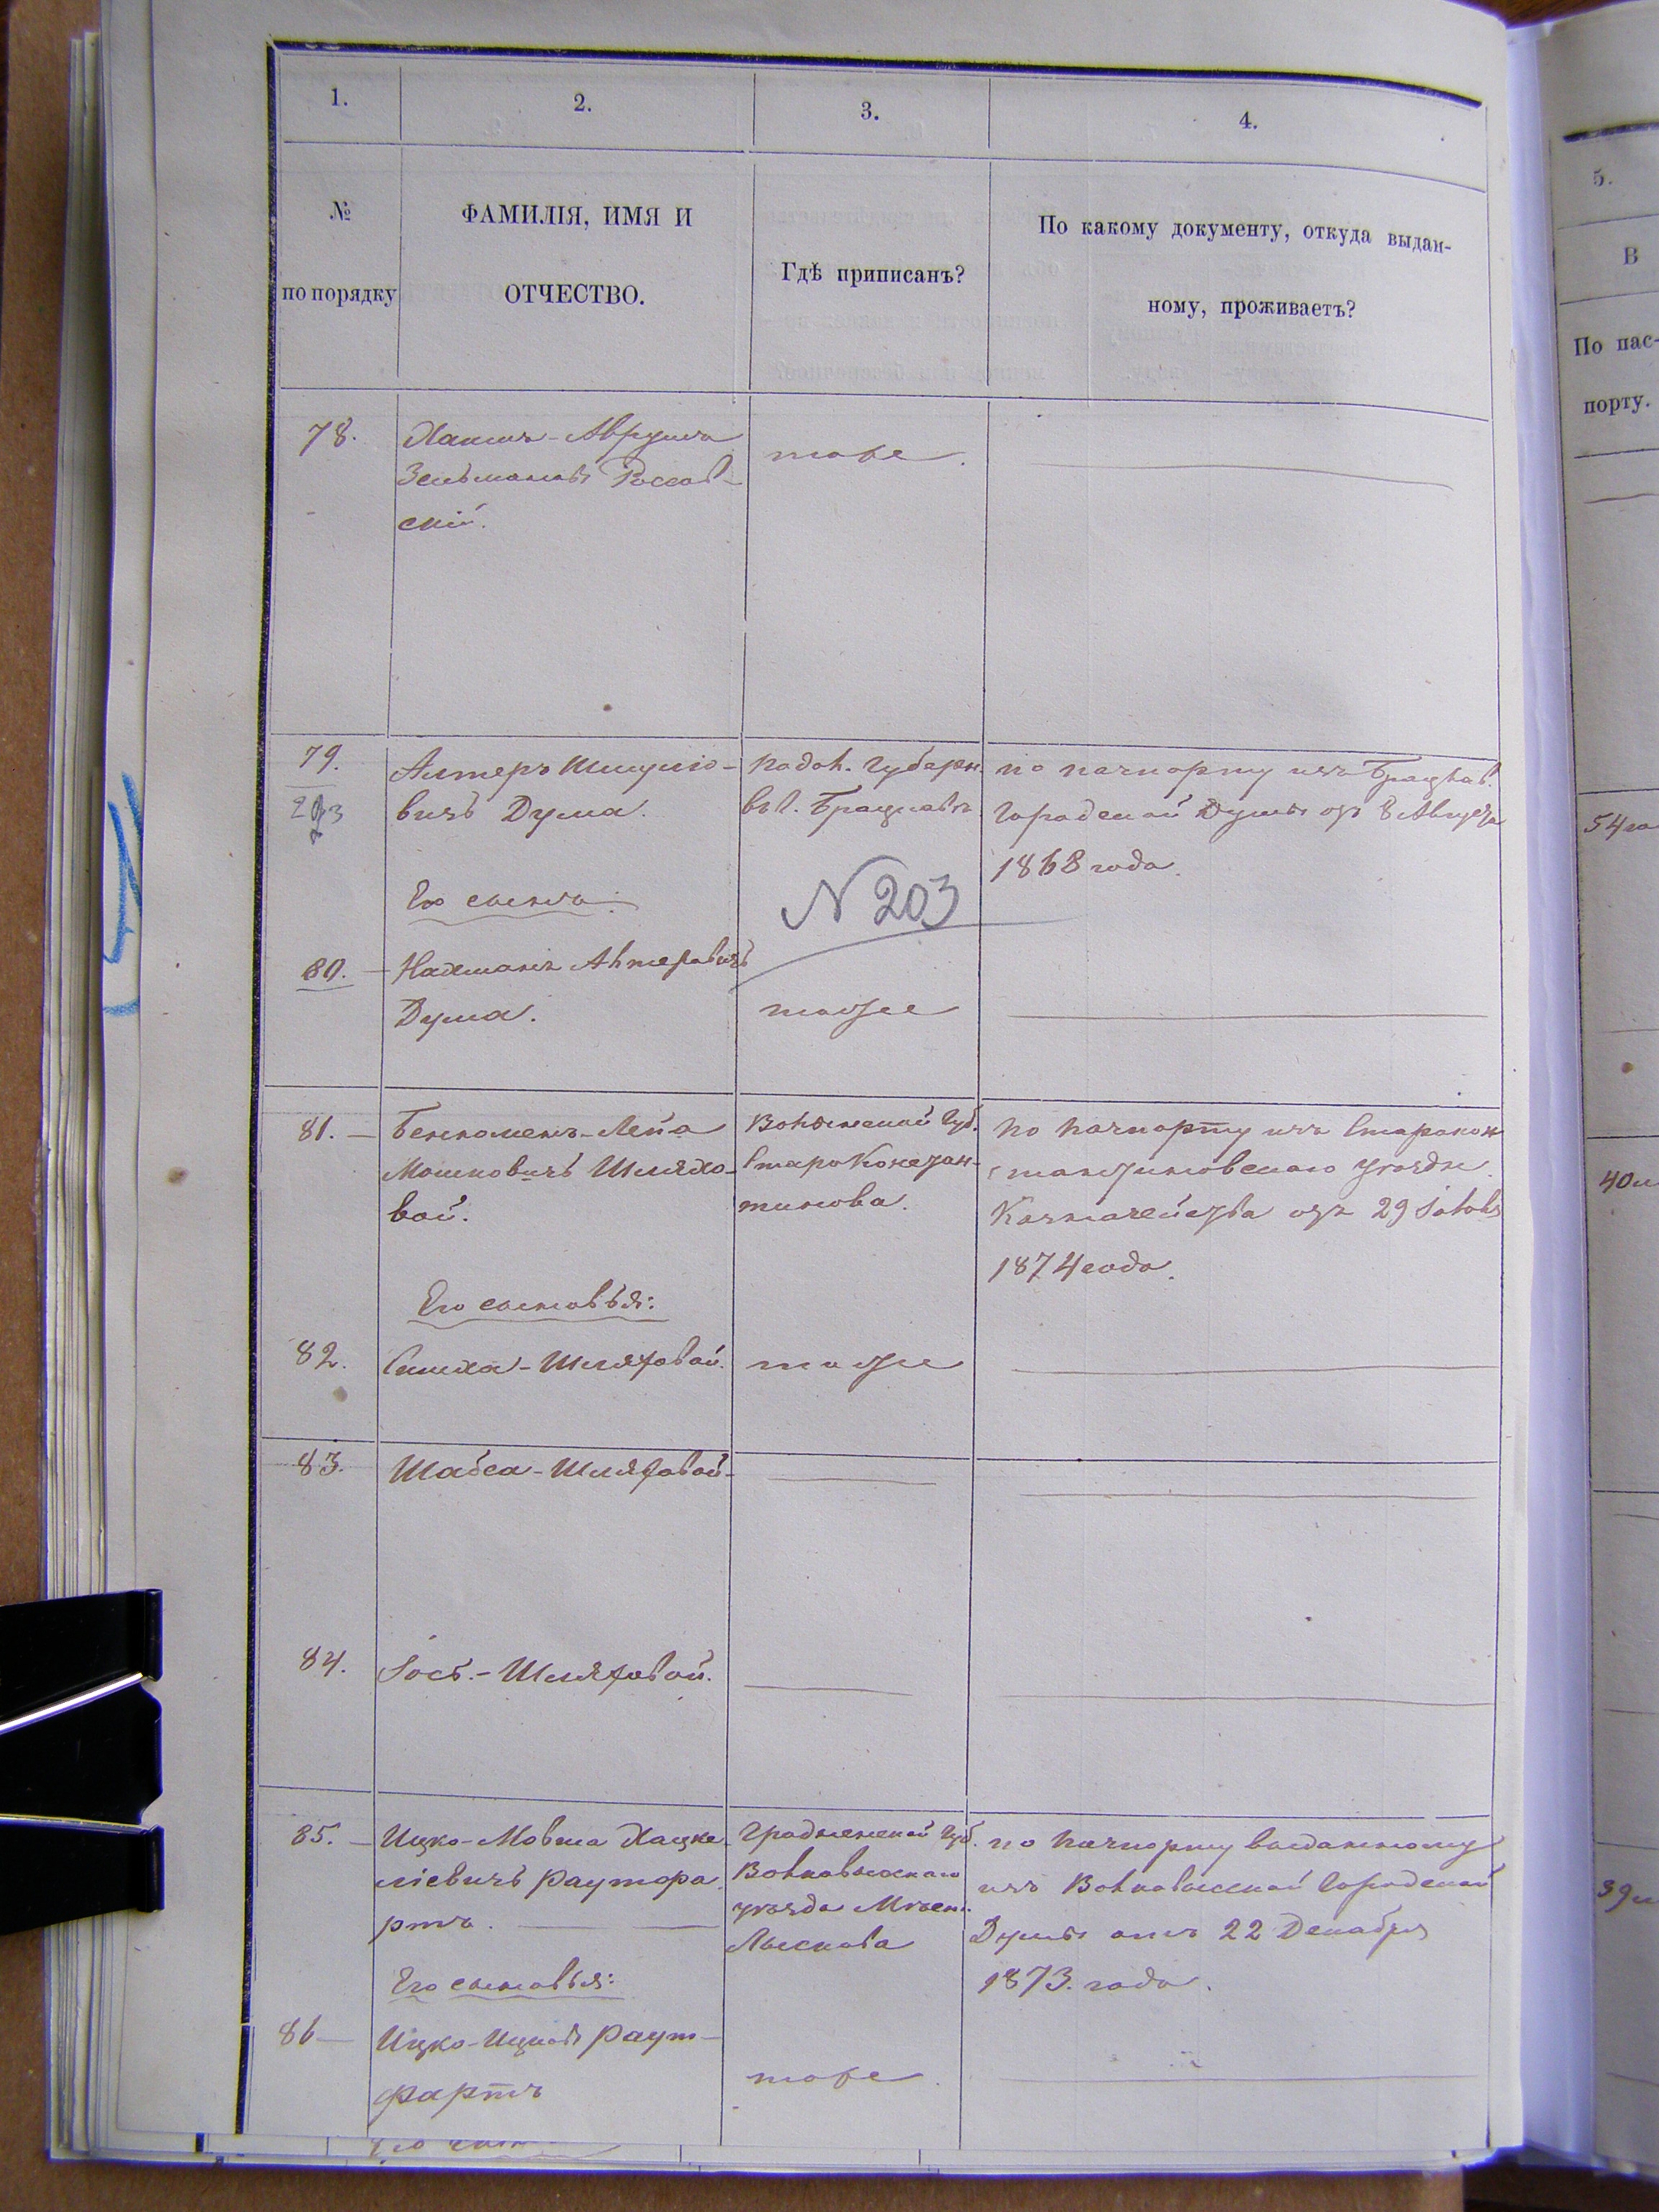 1.
2.
3.
4.
№
по порядку
ФАМИЛІЯ, ИМЯ И
ОТЧЕСТВО.
Гдѣ приписанъ?
По какому документу, откуда выдан-
ному, проживаетъ?
78.
Хаимъ-Аврумъ
Зельмановъ Россов-
скій.
тоже.
79.
203
Алтеръ Шмуліо-
вичъ Дума.
Подол. Губерн.
въ г. Брацлавѣ
по паспорту изъ Брацлав.
Городской Думы отъ 8 Августа
1868 года.
Его сынъ:
N 203
80.
Нахманъ Алтеровичъ
Дума.
тоже
81.
-Лейба
Мошковичъ Шляхо-
вой.
Волынской Губ.
Старо Констан-
тинова.
По паспорту изъ Старокон
стантиновскаго уѣздн.
Казначейства отъ 29
1874 года.
Его сыновья:
82.
Симха-Шляховой.
тоже
83.
Шабса-Шляховой-
84.
Іось.-Шляховой.
85.
Ицко-Мовша Хацке
ліевичъ Раутфа
ртъ.
Гродненской Губ.
Волковыскаго
уѣзда Мѣст.
Лыскова
по паспорту выданному
изъ Волковыской Городской
Думы отъ 22 Декабря
1873. года.
Его сыновья:
86
Ицко-Ицковъ Раут-
фартъ
тоже.
5.
В
По пас-
порту.
54
40
39